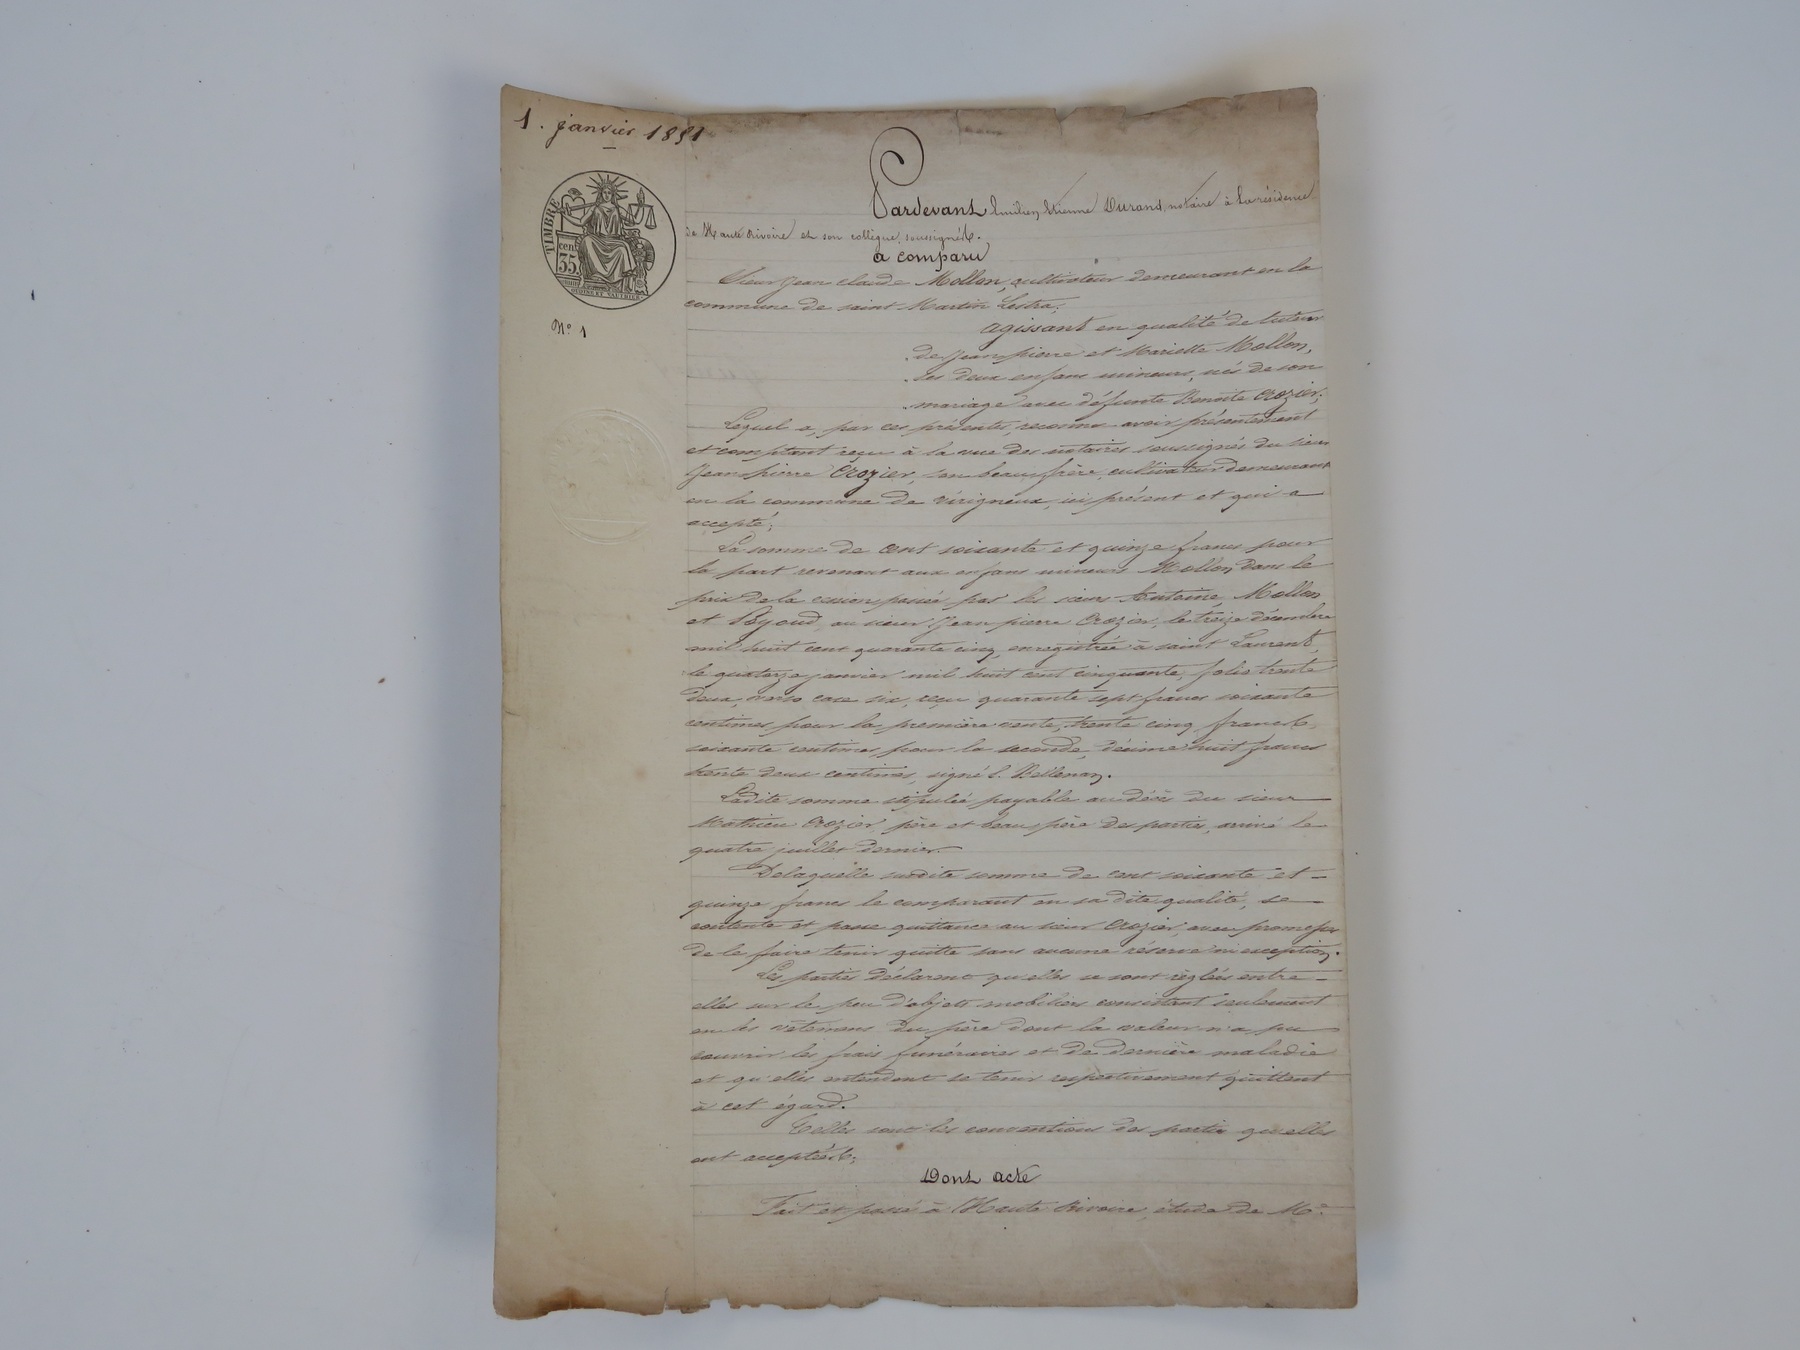 1. janvier 1851
TIMBRE
cen.
35.
N.° 1
Pardevant Emilien Etienne Durand, notaire à la résidence
de Haute Rivoire et son collègue, soussignés.
a comparu
Sieur Jean Claude Mollon, cultivateur demeurant en la
commune de saint Martin Lestra;
agissant en qualité de tuteur
de Jean pierre et Mariette Mollon,
ses deux enfans mineurs, nés de son
mariage avec défunte Benoite Crozier;
Lequel a, par ces présentes, reconnu avoir présentement
et comptant reçu à la vue des notaires soussignés du sieur
Jean pierre Crozier, son beau frère, cultivateur demeurant
en la commune de Virigneux, ici présent et qui a
accepté;
La somme de cent soixante et quinze francs pour
la part revenant aux enfans mineurs Mollon dans le
prix de la cession passée par les sieurs Antoine Mollon
et au sieur Jean pierre Crozier, le treize décembre
mil huit cent quarante cinq, enregistrée à saint Laurent,
le quatorze janvier mil huit cent cinquante, folio trente
deux, verso case six, reçu quarante sept francs soixante
centimes pour la première vente, trente cinq francs
soixante centimes pour la seconde, décime huit francs
trente deux centimes, signé
Ladite somme stipulée payable au décès du sieur
Mathieu Crozier, père et beau père des parties, arrivé le
quatre juillet dernier.
Delaquelle susdite somme de cent soixante et
quinze francs le comparant en sa dite qualité, se
contente et passe quittance au sieur Crozier, avec promesse
de le faire tenir quitte sans aucune réserve ni exception.
Les parties déclarent qu'elles se sont réglées entre
elles sur le peu d'objets mobiliers consistant seulement
en les vêtemens du père dont la valeur n'a pu
couvrir les frais funéraires et de dernière maladie
et qu'elles entendent se tenir respectivement quittent
à cet égard.
Telles sont les conventions des partie qu'elles
ont acceptées;
Dont acte
Fait et passé à Haute Rivoire, étude de M.e